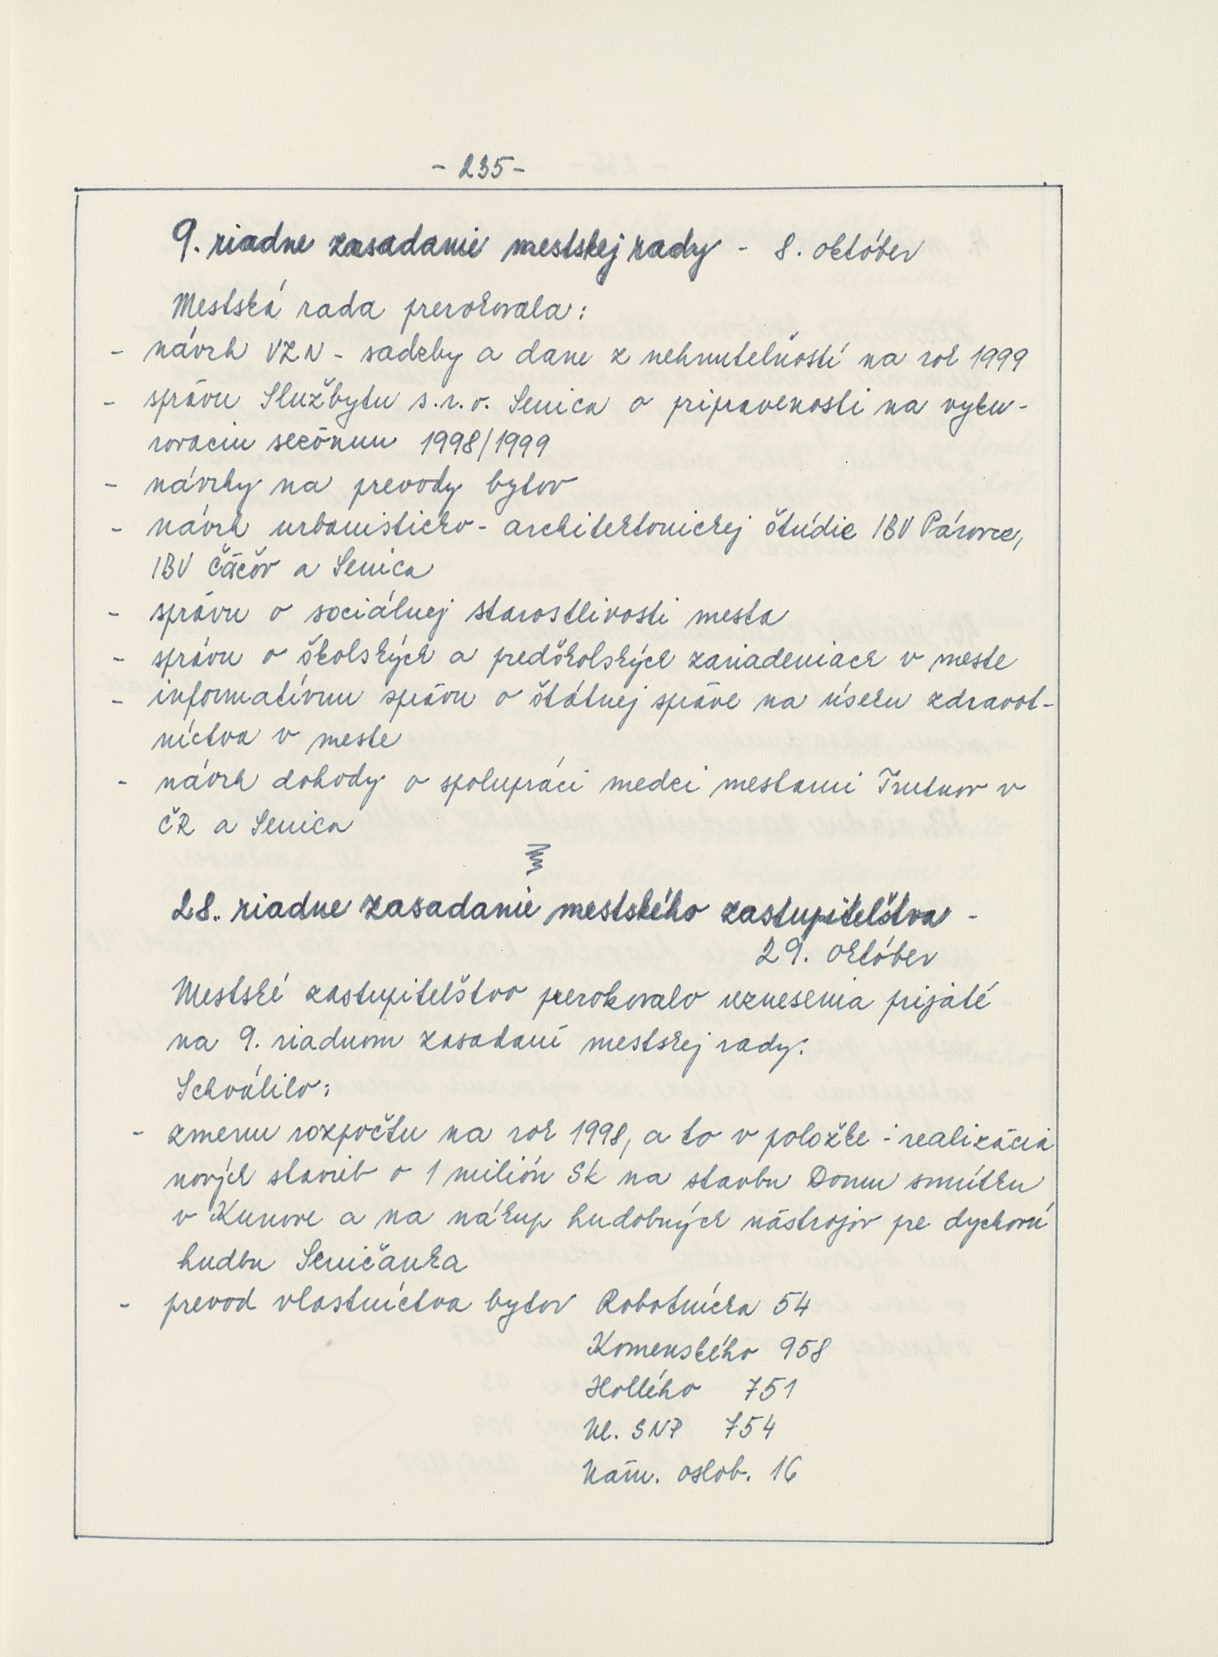 - 235 -
9. riadne zasadanie mestskej rady - 8. október
Mestská rada prerokovala:
- návrh VZN - sadzby a dane z nehnuteľností na rok 1999
- správu Službytu s.r.o. Senica o pripravenosti na vyku-
rovaciu sezónu 1998/1999
- návrhy na prevody bytov
- návrh urbanisticko - architektonickej štúdie IBV Párovce,
IBV Čáčov a Senica
- správu o sociálnej starostlivosti mesta
- správu o školských a predškolských zariadeniach v meste
- informatívnu správu o štátnej správe na úseku zdravot-
níctva v meste
- návrh dohody o spolupráci medzi mestami Trutnov v
ČR a Senica
28. riadne zasadanie mestského zastupiteľštva -
29. október
Mestské zastupiteľštvo prerokovalo uznesenia prijaté
na 9. riadnom zasadaní mestskej rady.
Schválilo:
- zmenu rozpočtu na rok 1998, a to v položke - realizácia
nových stavieb o 1 milión Sk na stavbu Domu smútku
v Kunove a na nákup hudobných nástrojov pre dychovú
hudbu Seničanka
- prevod vlastníctva bytov Robotnícka 54
Komenského 958
Hollého 751
Ul. SNP 754
Nám. oslob. 16